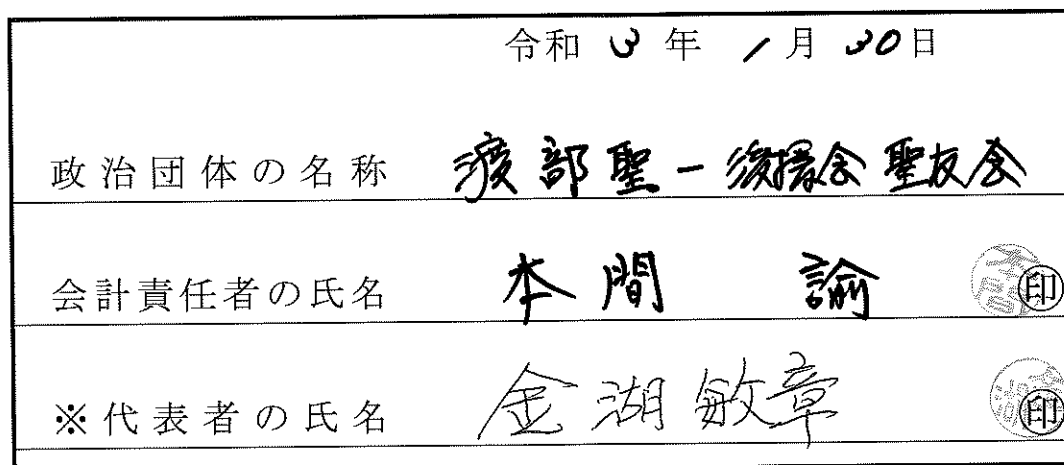 令和 3 年 1 月 30 日
政治団体の名称 渡部聖一後援会聖友会
会計責任者の氏名 本間 諭 印
※代表者の氏名 金湖敏章 印